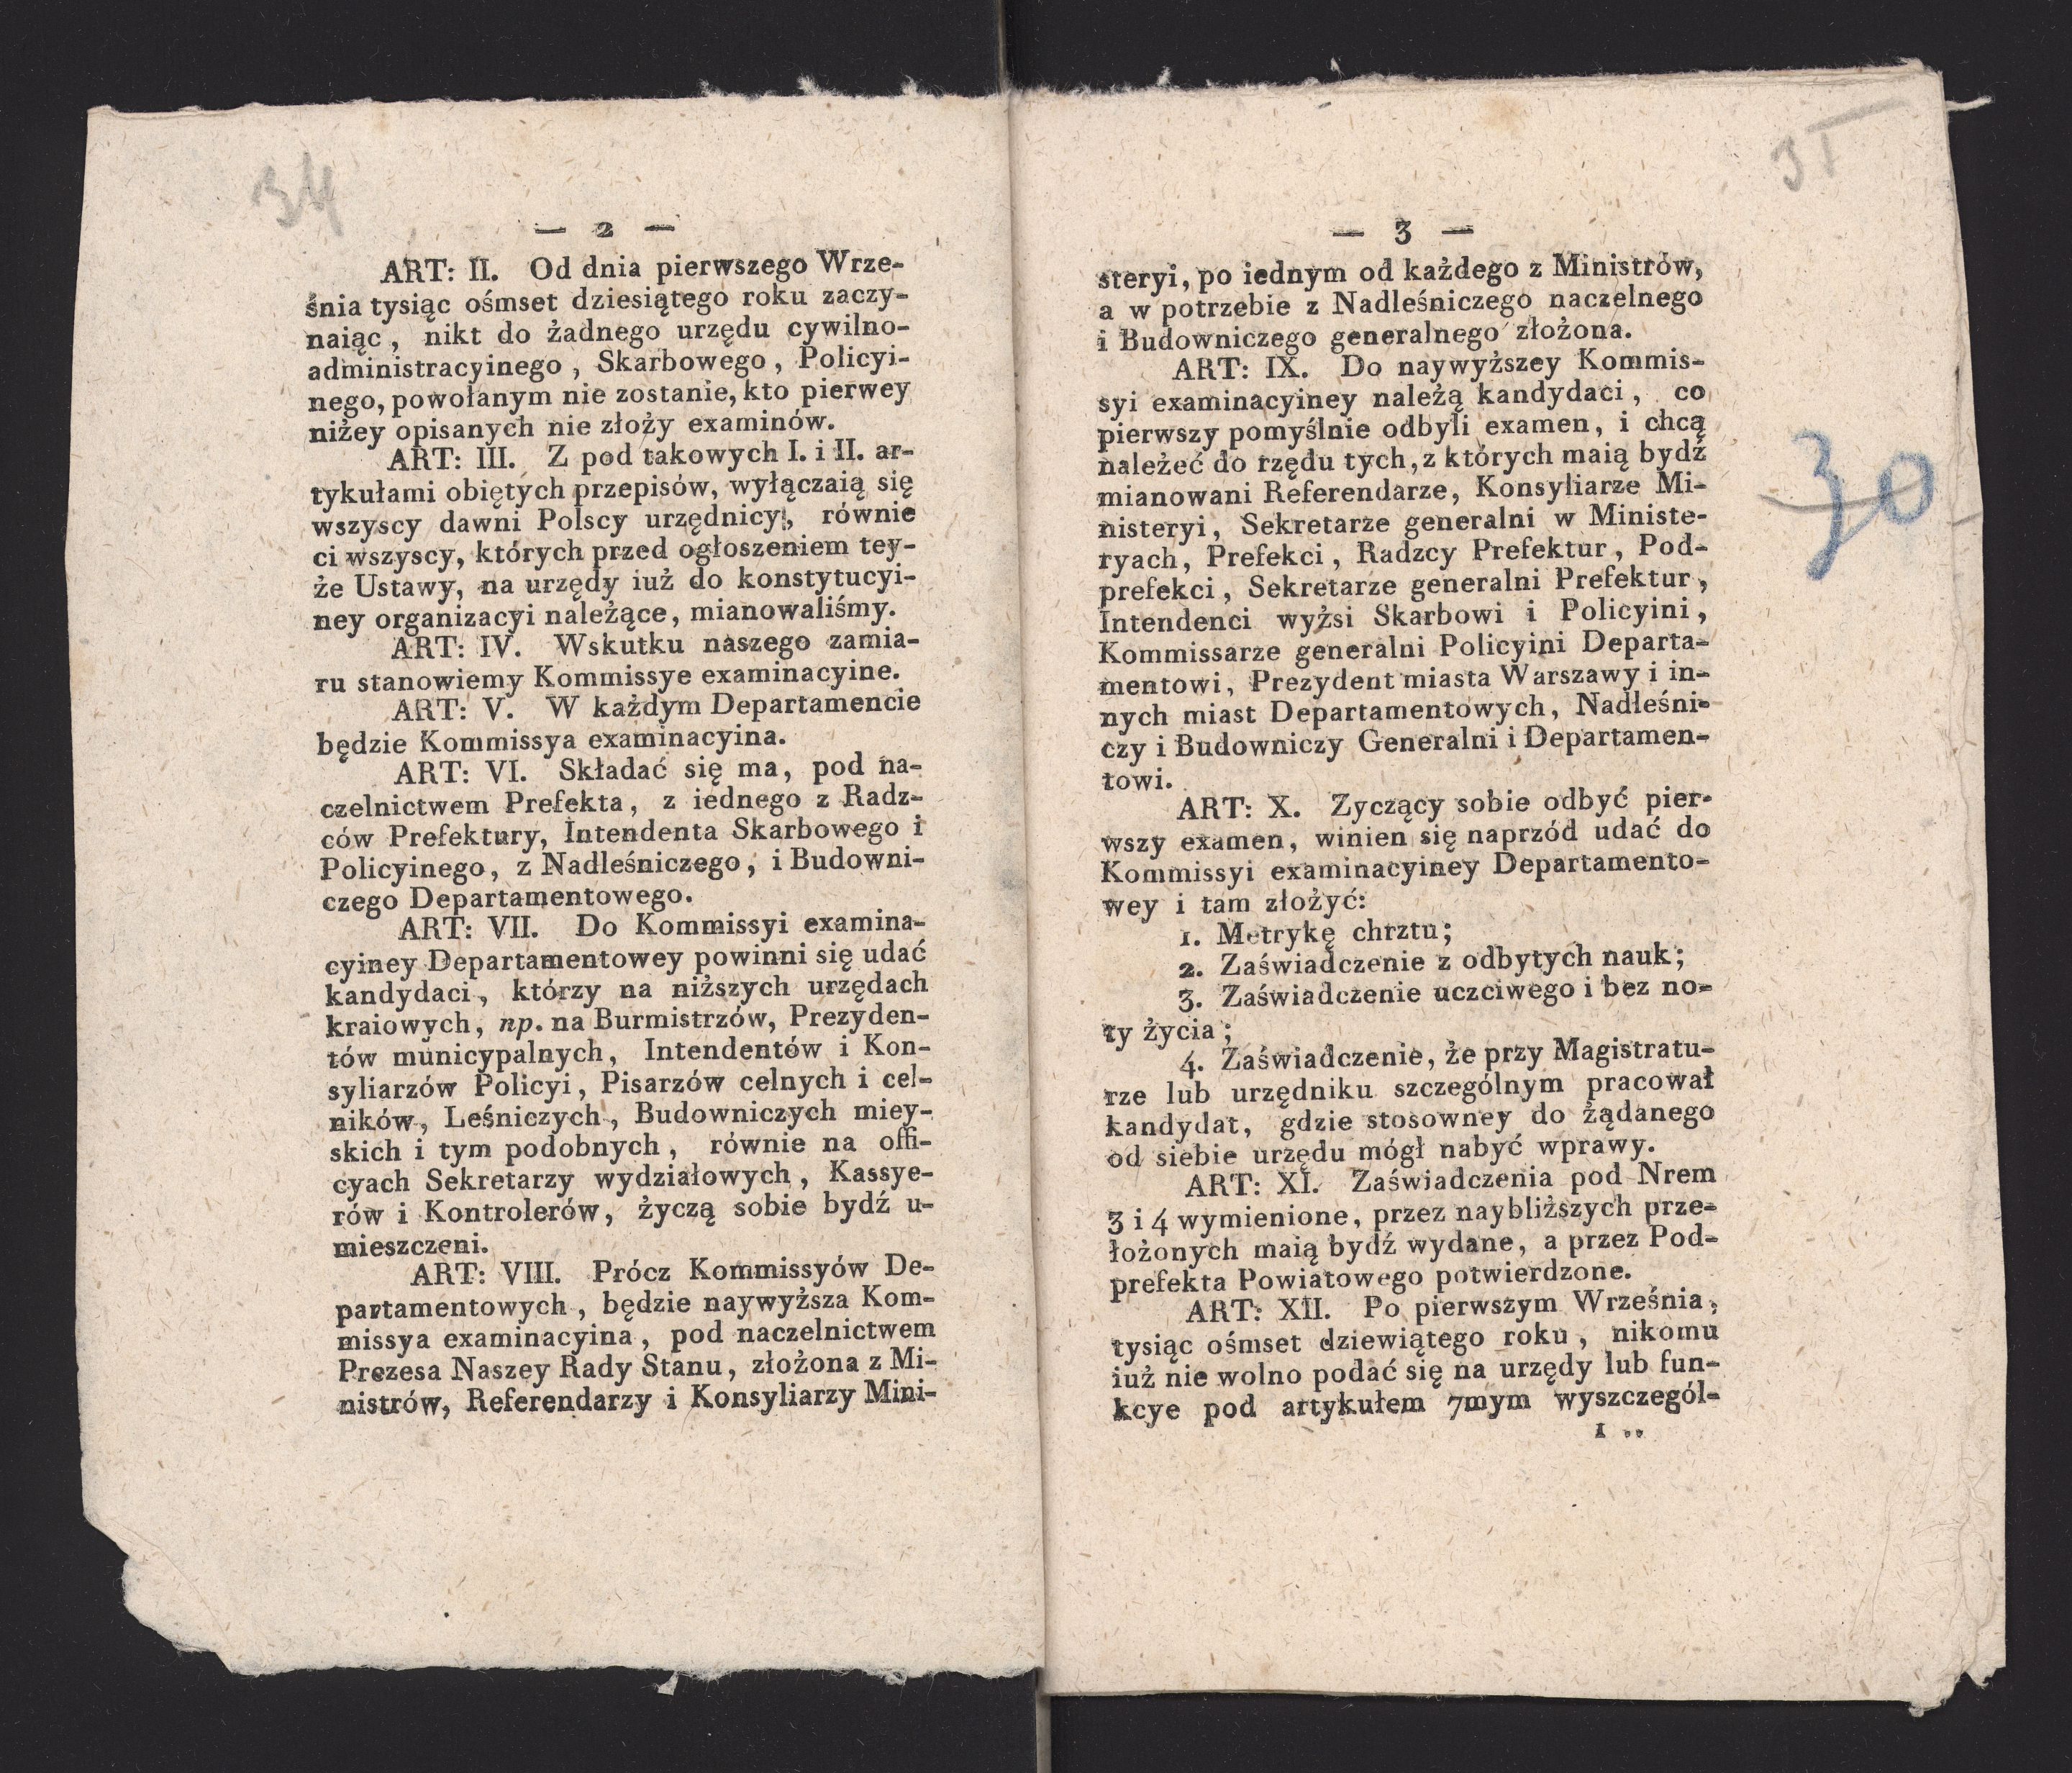 34
— 2 —
ART: II. Od dnia pierwszego Wrze-
śnia tysiąc ośmset dziesiątego roku zaczy-
naiąc, nikt do żadnego urzędu cywilno-
administracyinego, Skarbowego, Policyi-
nego, powołanym nie zostanie, kto pierwey
niżey opisanych nie złoży examinów.
ART: III. Z pod takowych I. i II. ar-
tykułami obiętych przepisów, wyłączaią się
wszyscy dawni Polscy urzędnicy, równie
ci wszyscy, których przed ogłoszeniem tey-
że Ustawy, na urzędy iuż do konstytucyi-
ney organizacyi należące, mianowaliśmy.
ART: IV. Wskutku naszego zamia-
ru stanowiemy Kommissye examinacyine.
ART: V. W każdym Departamencie
będzie Kommissya examinacyina.
ART: VI. Składać się ma, pod na-
czelnictwem Prefekta, z iednego z Radz-
ców Prefektury, Intendenta Skarbowego i
Policyinego, z Nadleśniczego, i Budowni-
czego Departamentowego.
ART: VII. Do Kommissyi examina-
cyiney Departamentowey powinni się udać
kandydaci, którzy na niższych urzędach
kraiowych, np. na Burmistrzów, Prezyden-
tów municypalnych, Intendentów i Kon-
syliarzów Policyi, Pisarzów celnych i cel-
ników, Leśniczych, Budowniczych miey-
skich i tym podobnych, równie na offi-
cyach Sekretarzy wydziałowych, Kassye-
rów i Kontrolerów, życzą sobie bydź u-
mieszczeni.
ART: VIII. Prócz Kommissyów De-
partamentowych, będzie naywyższa Kom-
missya examinacyina, pod naczelnictwem
Prezesa Naszey Rady Stanu, złożona z Mi-
nistrów, Referendarzy i Konsyliarzy Mini-
31
— 3 —
steryi, po iednym od każdego z Ministrów,
a w potrzebie z Nadleśniczego naczelnego
i Budowniczego generalnego złożona.
ART: IX. Do naywyższey Kommis-
syi examinacyiney należą kandydaci, co
pierwszy pomyślnie odbyli examen, i chcą
należeć do rzędu tych, z których maią bydź
mianowani Referendarze, Konsyliarze Mi-
nisteryi, Sekretarze generalni w Ministe-
ryach, Prefekci, Radzcy Prefektur, Pod-
prefekci, Sekretarze generalni Prefektur,
Intendenci wyżsi Skarbowi i Policyini,
Kommissarze generalni Policyini Departa-
mentowi, Prezydent miasta Warszawy i in-
nych miast Departamentowych, Nadleśni-
czy i Budowniczy Generalni i Departamen-
towi.
ART: X. Zyczący sobie odbyć pier-
wszy examen, winien się naprzód udać do
Kommissyi examinacyiney Departamento-
wey i tam złożyć:
1. Metrykę chrztu;
2. Zaświadczenie z odbytych nauk;
3. Zaświadczenie uczciwego i bez no-
ty życia;
4. Zaświadczenie, że przy Magistratu-
rze lub urzędniku szczególnym pracował
kandydat, gdzie stosowney do żądanego
od siebie urzędu mógł nabyć wprawy.
ART: XI. Zaświadczenia pod Nrem
3 i 4 wymienione, przez naybliższych prze-
łożonych maią bydź wydane, a przez Pod-
prefekta Powiatowego potwierdzone.
ART: XII. Po pierwszym Września,
tysiąc ośmset dziewiątego roku, nikomu
iuż nie wolno podać się na urzędy lub fun-
kcye pod artykułem 7mym wyszczegól-
1 ..
30